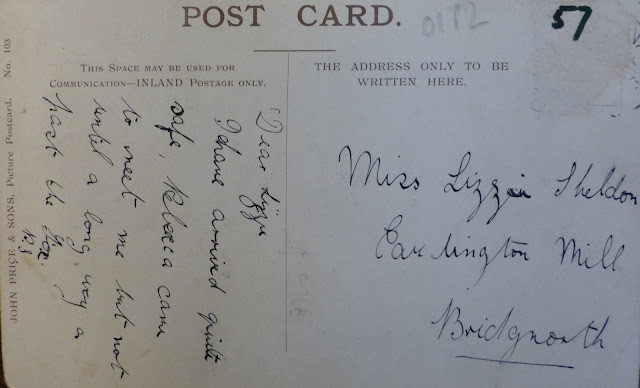 POST CARD.
0182
57
THIS SPACE MAY BE USED FOR
COMMUNICATION—INLAND POSTAGE ONLY.
THE ADDRESS ONLY TO BE
WRITTEN HERE.
JOHN PRICE & SONS, Picture Postcard. No. 103
Dear Lizzie
I have arrived quite
safe, Rebecca came
to meet me but not
until a long way a
past the Fox.
R.S
Miss Lizzie Sheldon
Eardington Mill
Bridgnorth